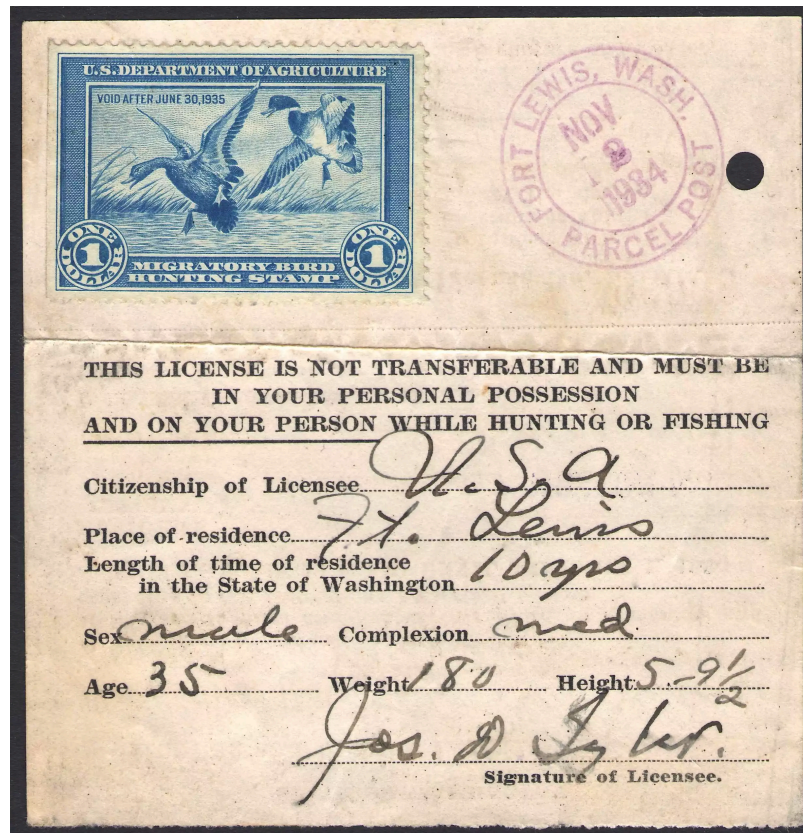 U.S. DEPARTMENT OF AGRICULTURE
VOID AFTER JUNE 30, 1935
ONE DOLLAR 1
MIGRATORY BIRD
HUNTING STAMP
ONE DOLLAR 1
FORT LEWIS, WASH.
NOV
1934
PARCEL POST
THIS LICENSE IS NOT TRANSFERABLE AND MUST BE
IN YOUR PERSONAL POSSESSION
AND ON YOUR PERSON WHILE HUNTING OR FISHING
Citizenship of Licensee U.S.A
Place of residence Ft. Lewis
Length of time of residence
in the State of Washington 10 yrs
Sex male Complexion med
Age 35 Weight 180 Height 5-9½
Jos. D
Signature of Licensee.